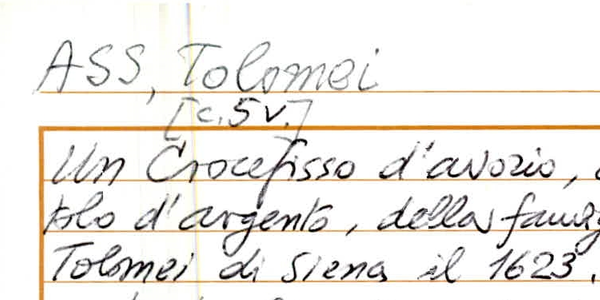 ASS, Tolomei
[c. 5 v.]
Un Crocefisso d'avorio,
tolo d'argento, della famig
Tolomei di Siena il 1623.